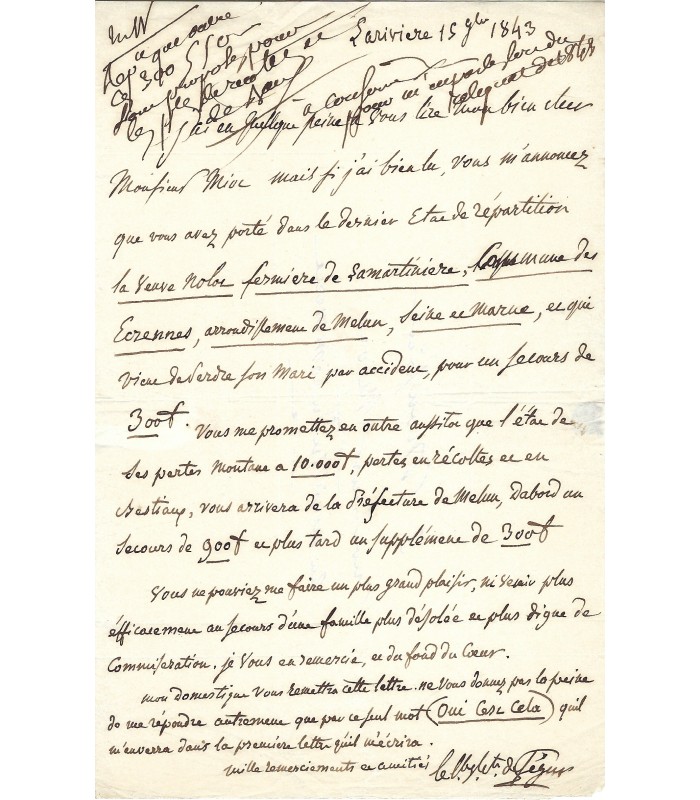 Lariviere 15 9bre 1843
ce 300
à conserver
j'ai eu quelque peine à vous lire mon bien cher
Monsieur Mioc mais si j'ai bien lu, vous m'annoncez
que vous avez porté dans le dernier Etat de répartition
la Veuve Noloc fermiere de Lamartiniere, Commune des
Ecrennes, arrondissement de Melun, Seine et Marne, et qui
vient de perdre son Mari par accident, pour un secours de
300f. Vous me promettez en outre aussitot que l'état de
ses pertes montant à 10.000f, pertes en récoltes et en
Bestiaux, vous arrivera de la Préfecture de Melun, Dabord un
secours de 900f et plus tard un supplément de 300f
Vous ne pouviez me faire un plus grand plaisir, ni venir plus
éfficacement au secours d'une famille plus désolée et plus digne de
Commisération. je vous en remercie, et du fond du Coeur.
mon domestique vous remettra cette lettre. ne vous donnez pas la peine
de me répondre autrement que par ce seul mot (Oui C'est Cela) qu'il
m'enverra dans la première lettre qu'il m'écrira.
mille remerciements et amitiés
de Ségur